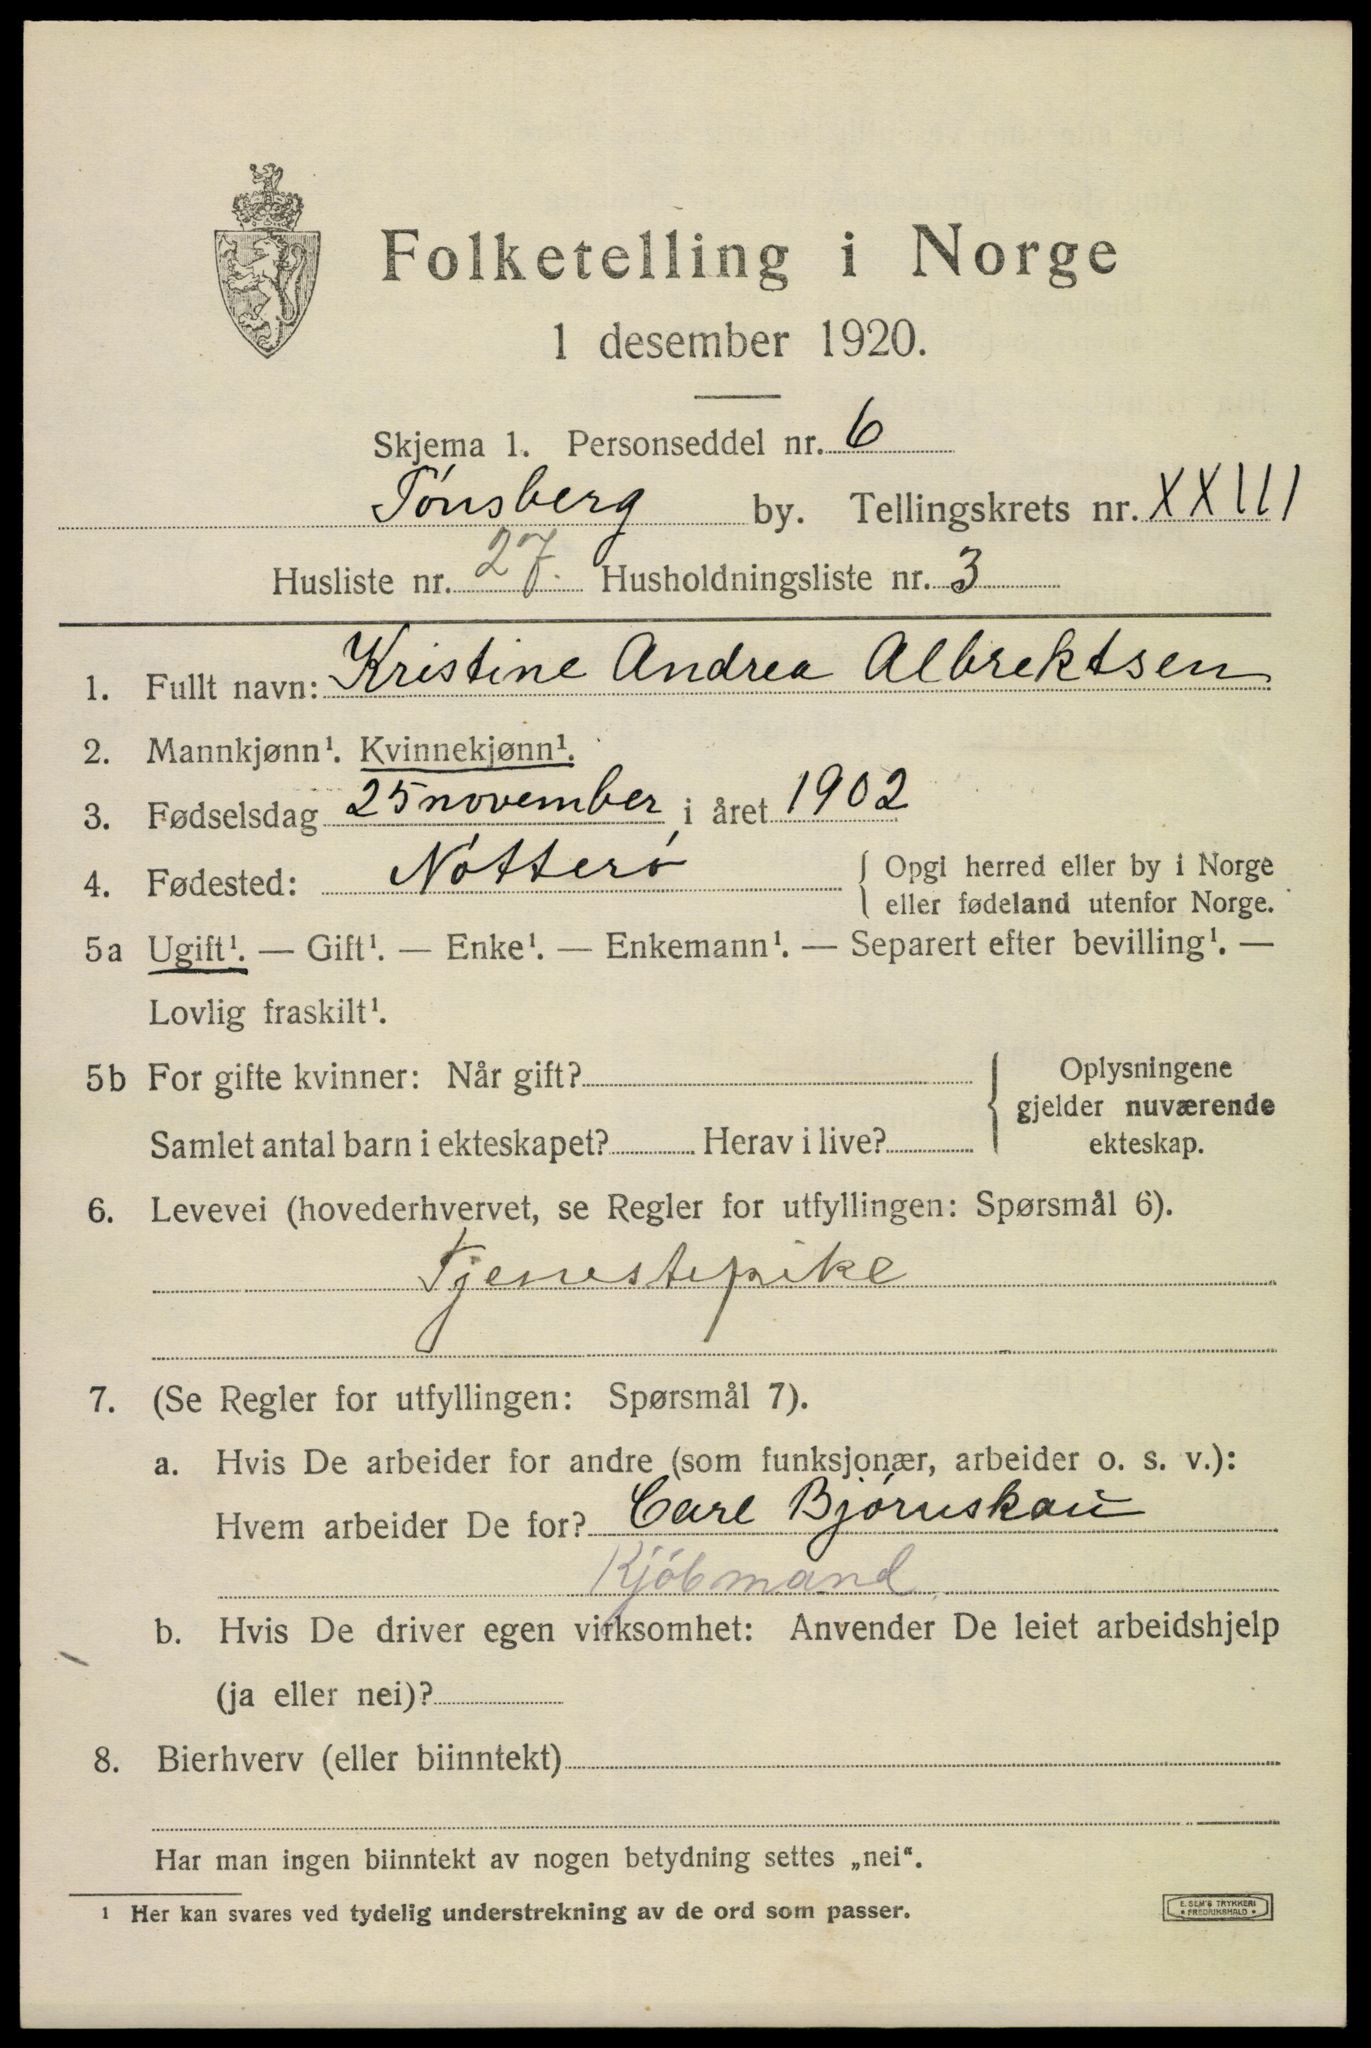 Folketelling i Norge
1 desember 1920.
Skjema 1. Personseddel nr. 6
Tönsberg by. Tellingskrets nr. XXIII
Husliste nr. 27. Husholdningsliste nr. 3
1. Fullt navn: Kristine Andrea Albrektsen
2. Mannkjønn¹. Kvinnekjønn¹.
3. Fødselsdag 25 november i året 1902
4. Fødested: Nötterö { Opgi herred eller by i Norge
eller fødeland utenfor Norge.
5a Ugift¹. — Gift¹. — Enke¹. — Enkemann¹. — Separert efter bevilling¹. —
Lovlig fraskilt¹.
5b For gifte kvinner: Når gift? { Oplysningene
gjelder nuværende
Samlet antal barn i ekteskapet? Herav i live? ekteskap.
6. Levevei (hovederhvervet, se Regler for utfyllingen: Spørsmål 6).
Tjenestepike
7. (Se Regler for utfyllingen: Spørsmål 7).
a. Hvis De arbeider for andre (som funksjonær, arbeider o. s. v.):
Hvem arbeider De for? Carl Björnskau
Kjöbmand.
b. Hvis De driver egen virksomhet: Anvender De leiet arbeidshjelp
(ja eller nei)?
8. Bierhverv (eller biinntekt)
Har man ingen biinntekt av nogen betydning settes „nei“.
¹ Her kan svares ved tydelig understrekning av de ord som passer.
E. SEM'S TRYKKERI
• FREDRIKSHALD •